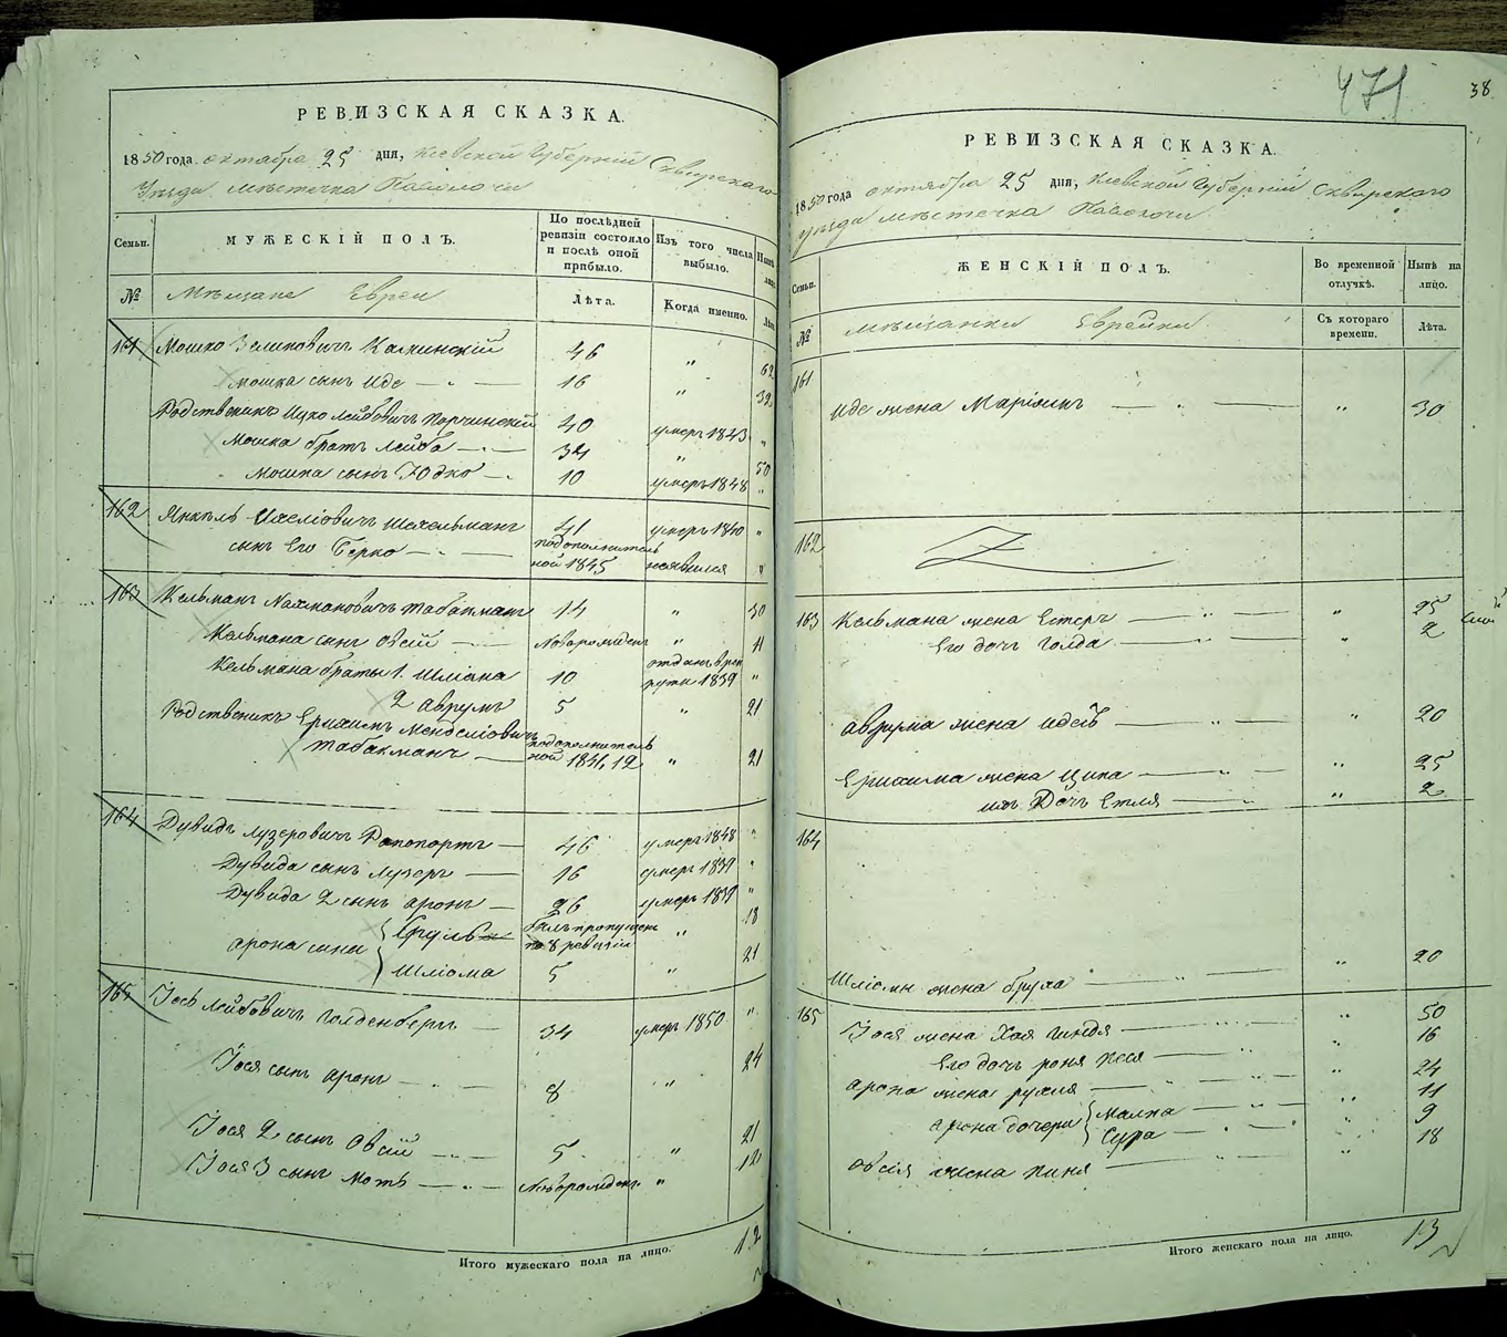 РЕВИЗСКАЯ СКАЗКА.
1850 года октября 25 дня, Киевской Губерніи Сквирскаго
Уезда местечка Паволочи
Семьи. МУЖЕСКІЙ ПОЛЪ. По послѣдней ревизіи состояло и послѣ оной прибыло. Изъ того числа выбыло. Нынѣ лицо
№ Мѣщане Евреи Лѣта. Когда именно. Лѣта
161 Мошко Зеликовичъ 46 " 62
Мошка сынъ Иде 16 " 32
Родственикъ Ицко Лейбовичъ 40 умеръ 1843 "
Мошка братъ Лейба 34 " 50
Мошка сынъ Юдко 10 умеръ 1848 "
162 Янкель 41 умеръ 1840 "
сынъ Его Берко по дополнитель
ной 1845 неявился "
163 Кельманъ Нахмановичъ Табакманъ 14 " 30
Кельмана сынъ Овсій Новорожденъ " 11
Кельмана братья 1. Шліома 10 отданъ в рек
руты 1839 "
2 Аврумъ 5 " 21
Родственикъ Ерухимъ Менделіовичъ
Табакманъ по дополнитель
ной 1841, 12 " 21
164 Дувидъ Лузеровичъ Рапопортъ 46 умеръ 1848 "
Дувида сынъ Лузеръ 16 умеръ 1839 "
Дувида 2 сынъ Аронъ 26 умеръ 1839 "
Арона сыны Сруль былъ пропущенъ
по 8 ревизіи " 18
Шліома 5 " 21
165 Іось Лейбовичъ Голденбергъ 34 умеръ 1850 "
Іося сынъ Аронъ 8 " 24
Іося 2 сынъ Овсій 5 " 21
Іося 3 сынъ Моть Новорожденъ " 12
Итого мужескаго пола на лицо. 12
471
38
РЕВИЗСКАЯ СКАЗКА.
1850 года октября 25 дня, Киевской Губерніи Сквирского
уезда местечка Паволочи
Семьи. ЖЕНСКІЙ ПОЛЪ. Во временной отлучкѣ. Нынѣ на лицо.
№ мѣщанки Еврейки Съ котораго времени. Лѣта.
161
Иде жена Маріямъ " 30
162
163 Кельмана жена Естеръ " 25
Его дочь Голда " 2
Аврума жена Идесь " 20
Ерухима жена Ципа " 25
ихъ Дочь Етля " 2
164
Шліомы жена Бруха " 20
165 Іося жена Хая Гиндя " 50
Его дочь Роня Песя " 16
Арона жена Рухля " 24
Арона дочери Малка " 11
Сура " 9
Овсія жена Пиня " 18
Итого женскаго пола на лицо. 13